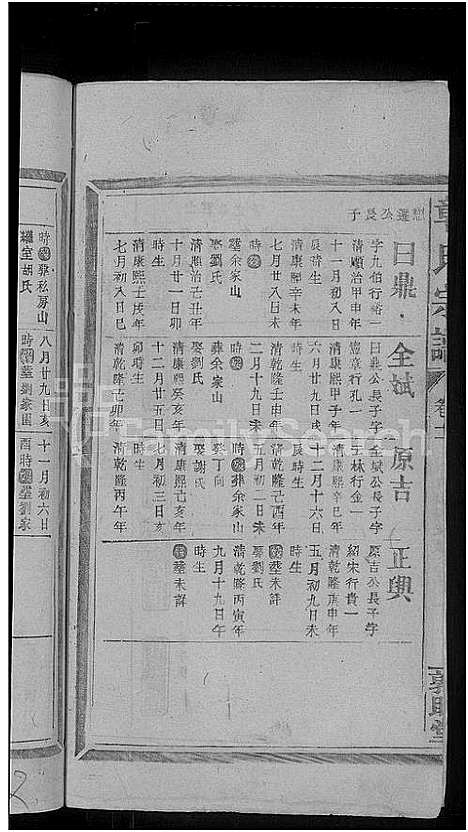 章氏宗譜
卷十
聰遠公長子
日鼎
字九伯行裕一
清順治甲申年
十一月初八日
辰時生
清康熙辛未年
七月廿八日未
時歿
葬余家山
娶劉氏
清順治己丑年
十月廿一日卯
時生
清康熙壬戌年
七月初八日巳
時歿葬私房山
繼室胡氏
全斌
日鼎公長子字
憲章行孔一
清康熙甲子年
六月廿九日戌
時生
清乾隆壬申年
二月十九日未
時歿
葬余家山
娶劉氏
清康熙癸亥年
十二月廿五日
卯時生
清乾隆己卯年
八月廿九日亥
時歿葬劉家
原吉
全斌公長子字
玉林行金一
清康熙辛巳年
十二月十六日
辰時生
清乾隆己酉年
五月初二日未
時歿葬余家山
癸丁向
娶胡氏
清康熙己亥年
七月初三日亥
時生
清乾隆丙午年
十一月初六日
酉時歿葬劉家
正興
原吉公長子字
紹宋行貴一
清乾隆庚申年
五月初九日未
時生
歿葬未詳
娶劉氏
清乾隆丙寅年
九月十九日午
時生
歿葬未詳
FamilySearch